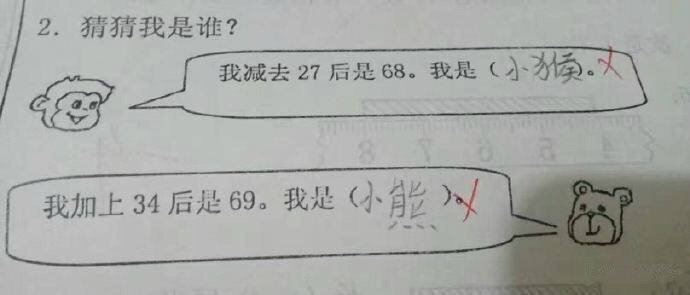 2. 猜猜我是谁？
我减去 27 后是 68。我是（小猴）。
我加上 34 后是 69。我是（小熊）。